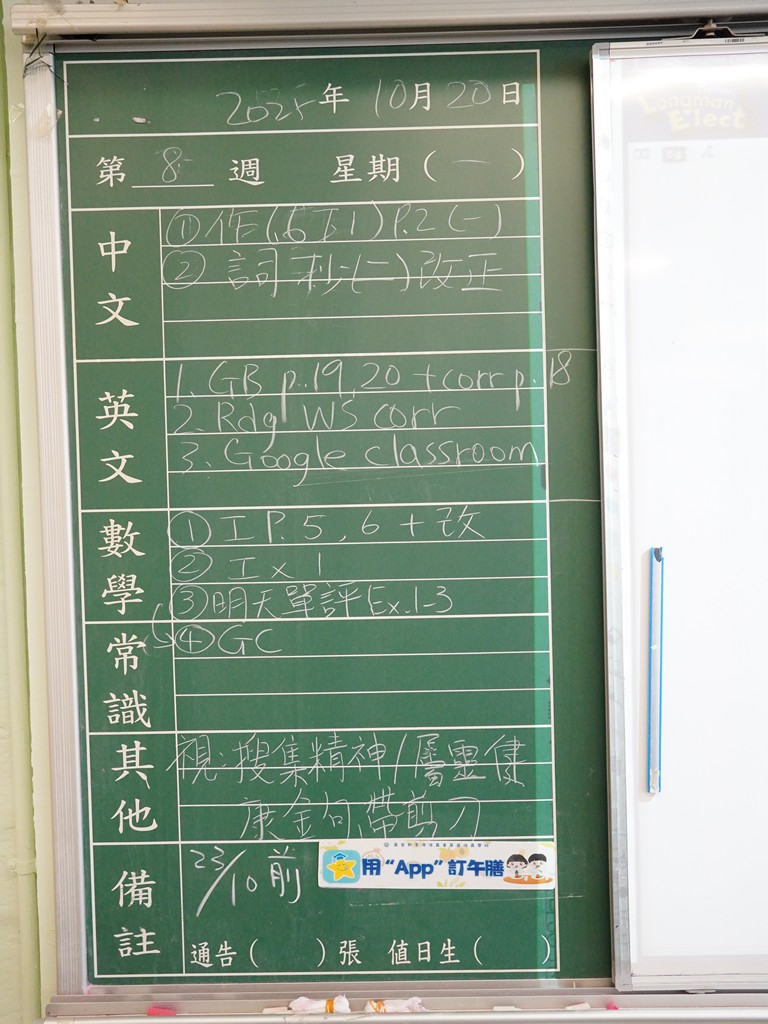 2025年 10月 20日
第 8 週 星期 ( 一 )
中文
① 作(.6下1) P.2 (一)
② 詞秒:(二)改正
英文
1. GB p.19,20 + corr p.18
2. Rdg WS corr
3. Google classroom
數學
① 工 P. 5, 6 + 改
② 工 x 1
③ 明天單評 Ex. 1-3
常識
④ GC
其他
視:搜集精神/屬靈健
康金句帶剪刀
備註
23/10 前
用 "App" 訂午膳
通告 ( ) 張 值日生 ( )
Longman
Elect